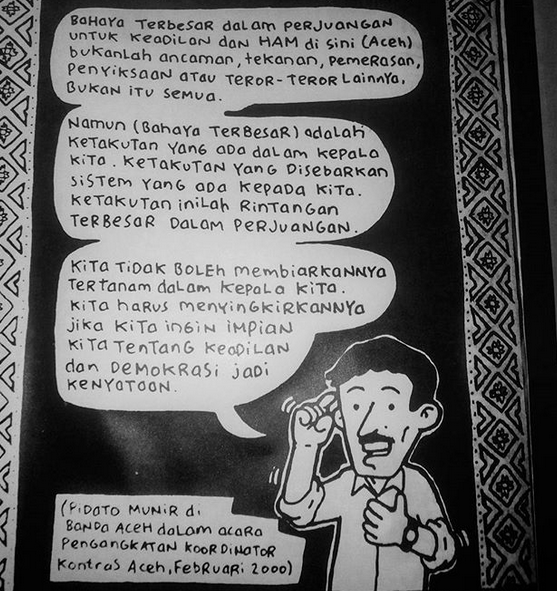 BAHAYA TERBESAR DALAM PERJUANGAN
UNTUK KEADILAN DAN HAM di sini (Aceh)
BUKANLAH ANCAMAN, TEKANAN, PEMERASAN,
PENYIKSAAN ATAU TEROR-TEROR LAINNYA.
BUKAN ITU SEMUA.
NAMUN (BAHAYA TERBESAR) ADALAH
KETAKUTAN YANG ADA DALAM KEPALA
KITA. KETAKUTAN YANG DISEBARKAN
SISTEM YANG ADA KEPADA KITA.
KETAKUTAN INILAH RINTANGAN
TERBESAR DALAM PERJUANGAN.
KITA TIDAK BOLEH MEMBIARKANNYA
TERTANAM DALAM KEPALA KITA.
KITA HARUS MENYINGKIRKANNYA
JIKA KITA INGIN IMPIAN
KITA TENTANG KEADILAN
DAN DEMOKRASI JADI
KENYATAAN.
(PIDATO MUNIR di
BANDA ACEH DALAM ACARA
PENGANGKATAN KOORDINATOR
KONTRAS ACEH, FEBRUARI 2000)